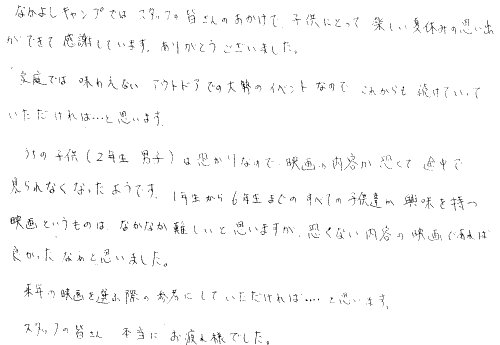 なかよしキャンプでは スタッフの皆さんのおかげで、子供にとって 楽しい夏休みの思い出
ができて 感謝しています。ありがとうございました。
家庭では 味わえない アウトドアでの大勢のイベントなので これからも 続けていって
いただければ…と思います。
うちの子供(2年生 男子)は恐がりなので、映画の内容が 恐くて 途中で
見られなくなったようです。1年生から6年生までのすべての子供達が 興味を持つ
映画というものは、なかなか難しいと思いますが、恐くない内容の映画であれば
良かったなぁと思いました。
来年の映画を選ぶ際の参考にしていただければ‥‥と思います。
スタッフの皆さん 本当に お疲れ様でした。